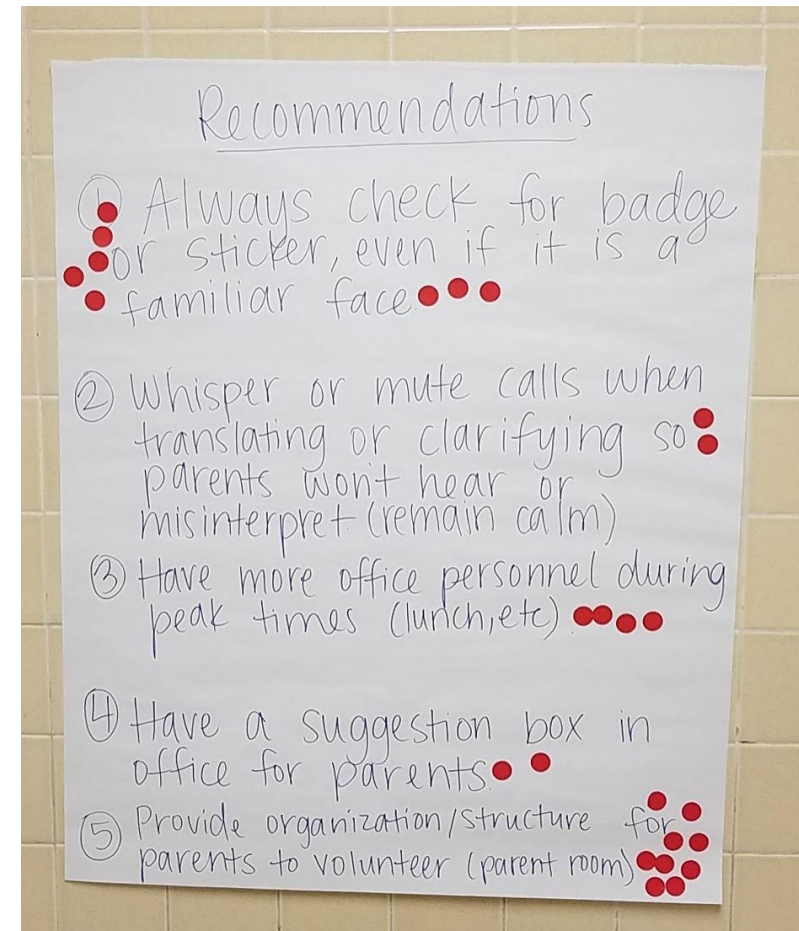 Recommendations
① Always check for badge
or sticker, even if it is a
familiar face
② Whisper or mute calls when
translating or clarifying so
parents won't hear or
misinterpret (remain calm)
③ Have more office personnel during
peak times (lunch, etc)
④ Have a suggestion box in
office for parents.
⑤ Provide organization/structure for
parents to volunteer (parent room)